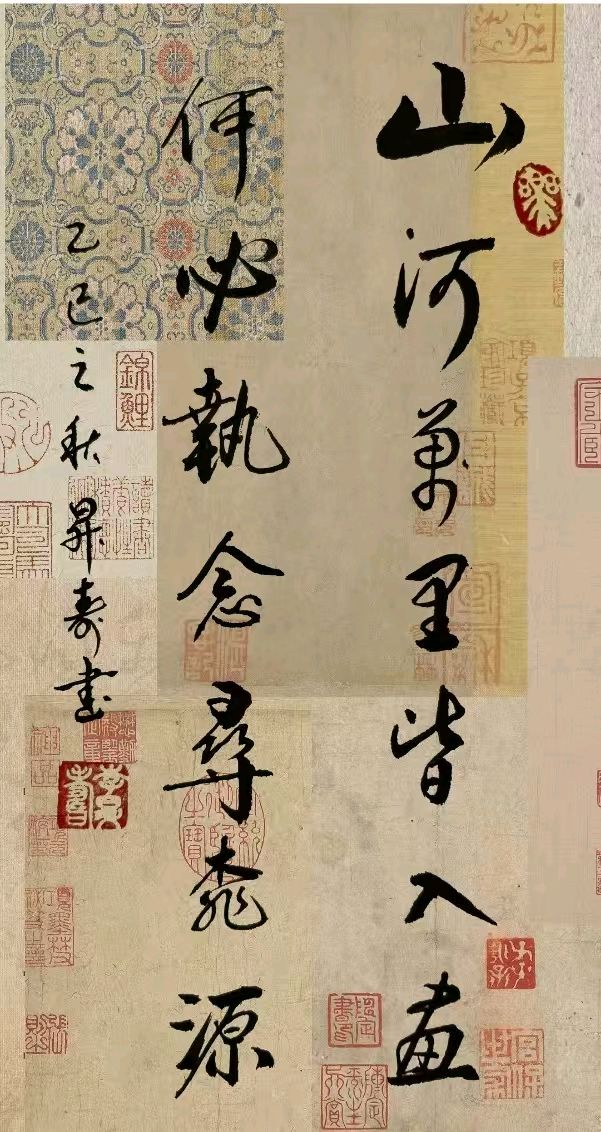 山河萬里皆入畫
何必執念尋桃源
乙巳之秋昇壽書
錦鯉